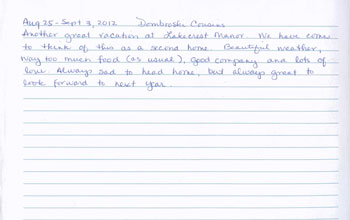 Aug 25 - Sept 3, 2012 Dombroski Cousins
Another great vacation at Lakecrest Manor. We have come
to think of this as a second home. Beautiful weather,
way too much food (as usual), good company and lots of
love. Always sad to head home, but always great to
look forward to next year.